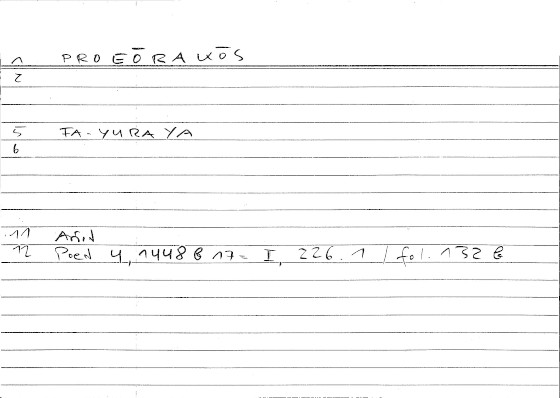 1 PROEŌRAKŌS
2
5 FA-YURAYA
6
11 Arist
12 Poet 4, 1448 b 17 = I, 226.1 / fol. 132 b